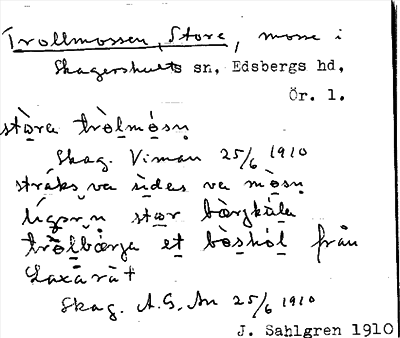 Trollmossen, Store, mosse i
Skagershults sn, Edsbergs hd,
Ör. l.
stòra tròlmósn
Skag. Viman 25/6 1910
stráks va sìdes va mòsn
lígər n stər bàrgkàla
tròlbàrja et bòshòl från
Laxårå
Skag. A.G. An 25/6 1910
J. Sahlgren 1910